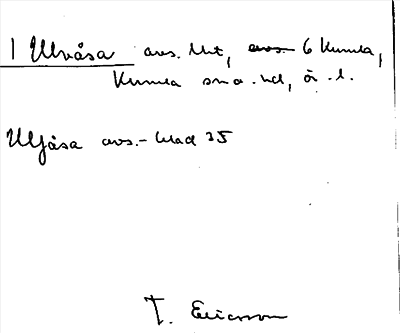 1 Ulvåsa avs. till, avs. 6 Kumla,
Kumla sn o. hd, ör. l.
Ulfåsa avs.-blad 35
T. Ericsson